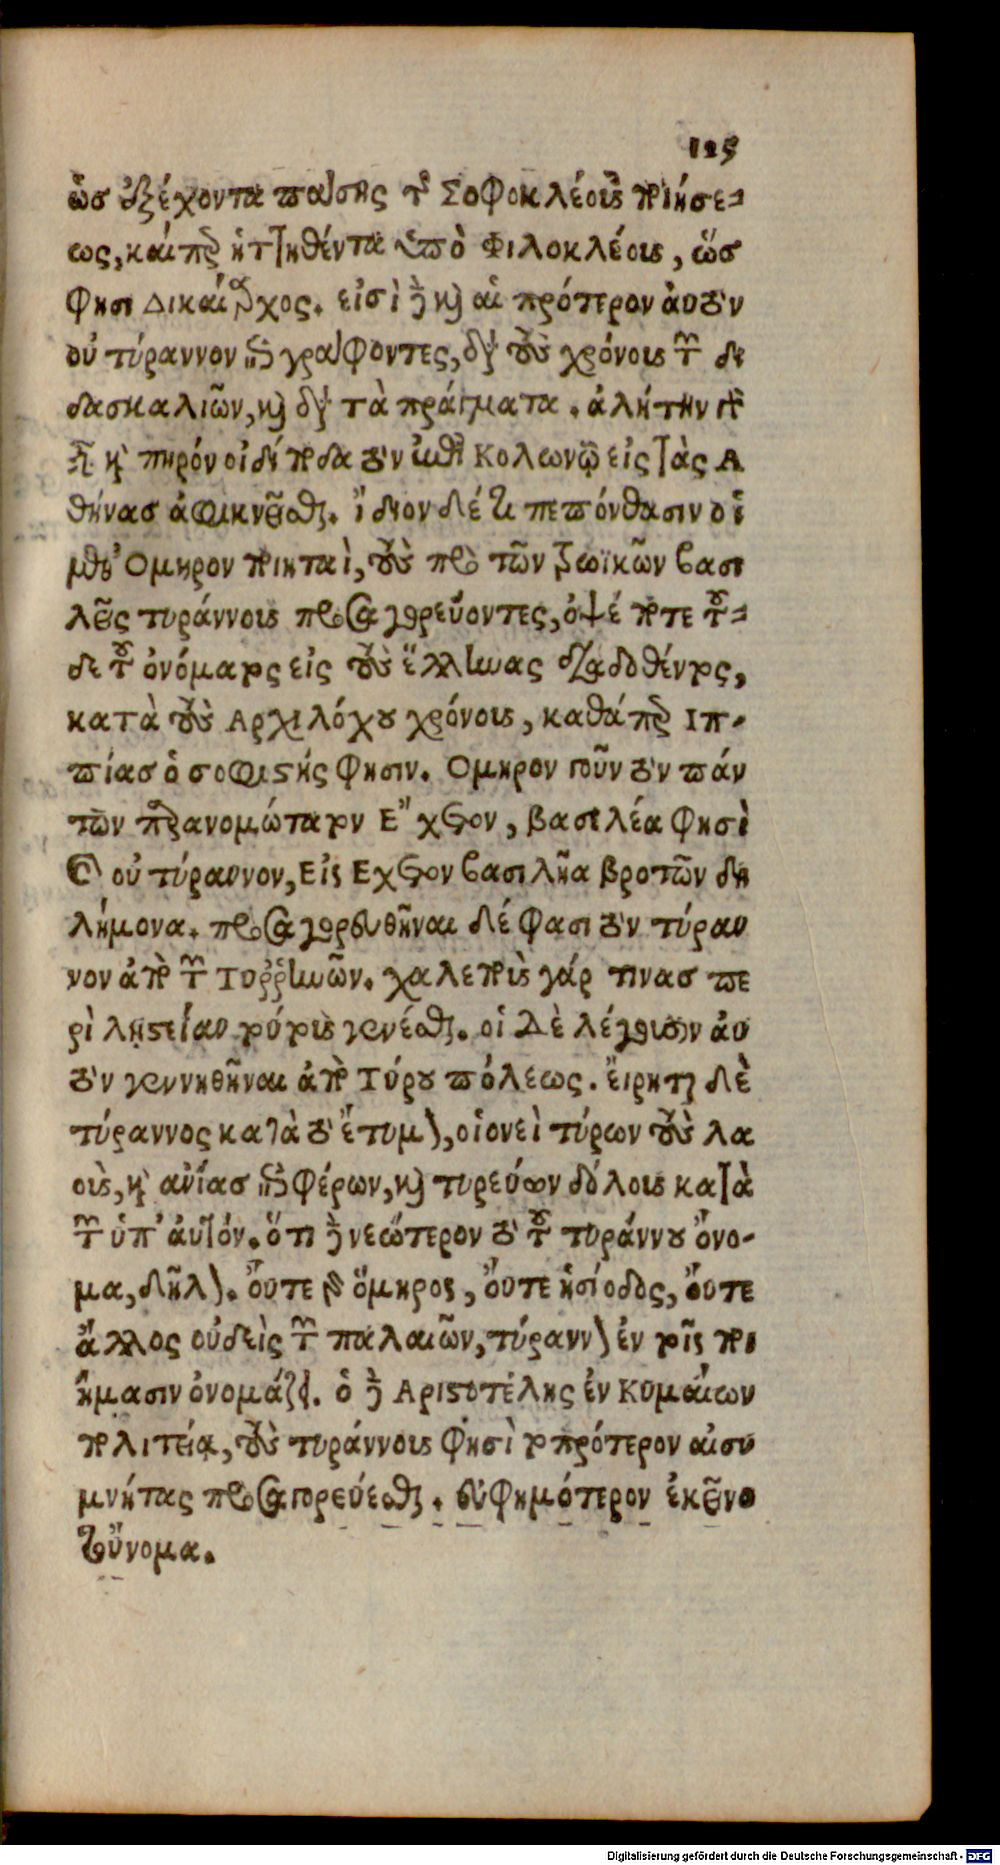 125
ὡσ ἐξέχοντα πάσης τῆς Σοφοκλέους ποιήσε-
ως, καίπερ ἡττηθέντα ὑπὸ Φιλοκλέους, ὥσ
φησι Δικαίαρχος. εἰσὶ δὲ καὶ οἱ πρότερον ἀυτὸν
οὐ τύραννον ἐπιγράφοντες, διὰ τοὺς χρόνους τῶν δι
δασκαλιῶν, καὶ διὰ τὰ πράγματα. ἀλήτην γὰρ
καὶ πηρόν οἰδίποδα τὸν ἐπὶ Κολωνῷ εἰς τὰς Α
θήνασ ἀφικνεῖσθαι. ἴδιον δέ τι πεπόνθασιν οἱ
μεθ' Ὅμηρον ποιηταὶ, τοὺς πρὸ τῶν τρωϊκῶν βασι
λεῖς τυράννους προσαγορεύοντες, ὀψέ ποτε τοῦ-
δε τοῦ ὀνόματος εἰς τοὺς ἕλληνας διαδοθέντος,
κατὰ τοὺς Αρχιλόχου χρόνους, καθάπερ Ιπ-
πίασ ὁ σοφιστής φησιν. Ομηρον γοῦν τὸν πάν
των παρανομώτατον Ἔχετον, βασιλέα φησὶ
καὶ οὐ τύραννον, Εἰς Εχετον βασιλῆα βροτῶν δη
λήμονα. προσαγορευθῆναι δέ φασι τὸν τύραν
νον ἀπὸ τῶν Τυρρηνῶν. χαλεποὺς γάρ τινασ πε
ρὶ λῃστείαν τούτους γενέσθαι. οἱ δὲ λέγουσιν ἀυ
τὸν γεννηθῆναι ἀπὸ Τύρου πόλεως. ἔιρηται δὲ
τύραννος κατὰ τὸ ἔτυμον, οἱονεὶ τύρων τοὺς λα
οὺς, καὶ ἀνίασ ἐπιφέρων, καὶ τυρεύων δόλους κατὰ
τῶν ὑπ' ἀυτόν. ὅτι δὲ νεώτερον τὸ τοῦ τυράννου ὄνο-
μα, δῆλον. ὄυτε γὰρ ὅμηρος, ὄυτε ἡσίοδος, ὄυτε
ἄλλος οὐδεὶς τῶν παλαιῶν, τύραννον ἐν τοῖς ποι
ήμασιν ὀνομάζει. ὁ δὲ Αριστοτέλης ἐν Κυμαίων
πολιτείᾳ, τοὺς τυράννους φησὶ τὸ πρότερον αἰσυ
μνήτας προσαγορεύεσθαι. εὐφημότερον ἐκεῖνο
τοὔνομα.
Digitalisierung gefördert durch die Deutsche Forschungsgemeinschaft - DFG